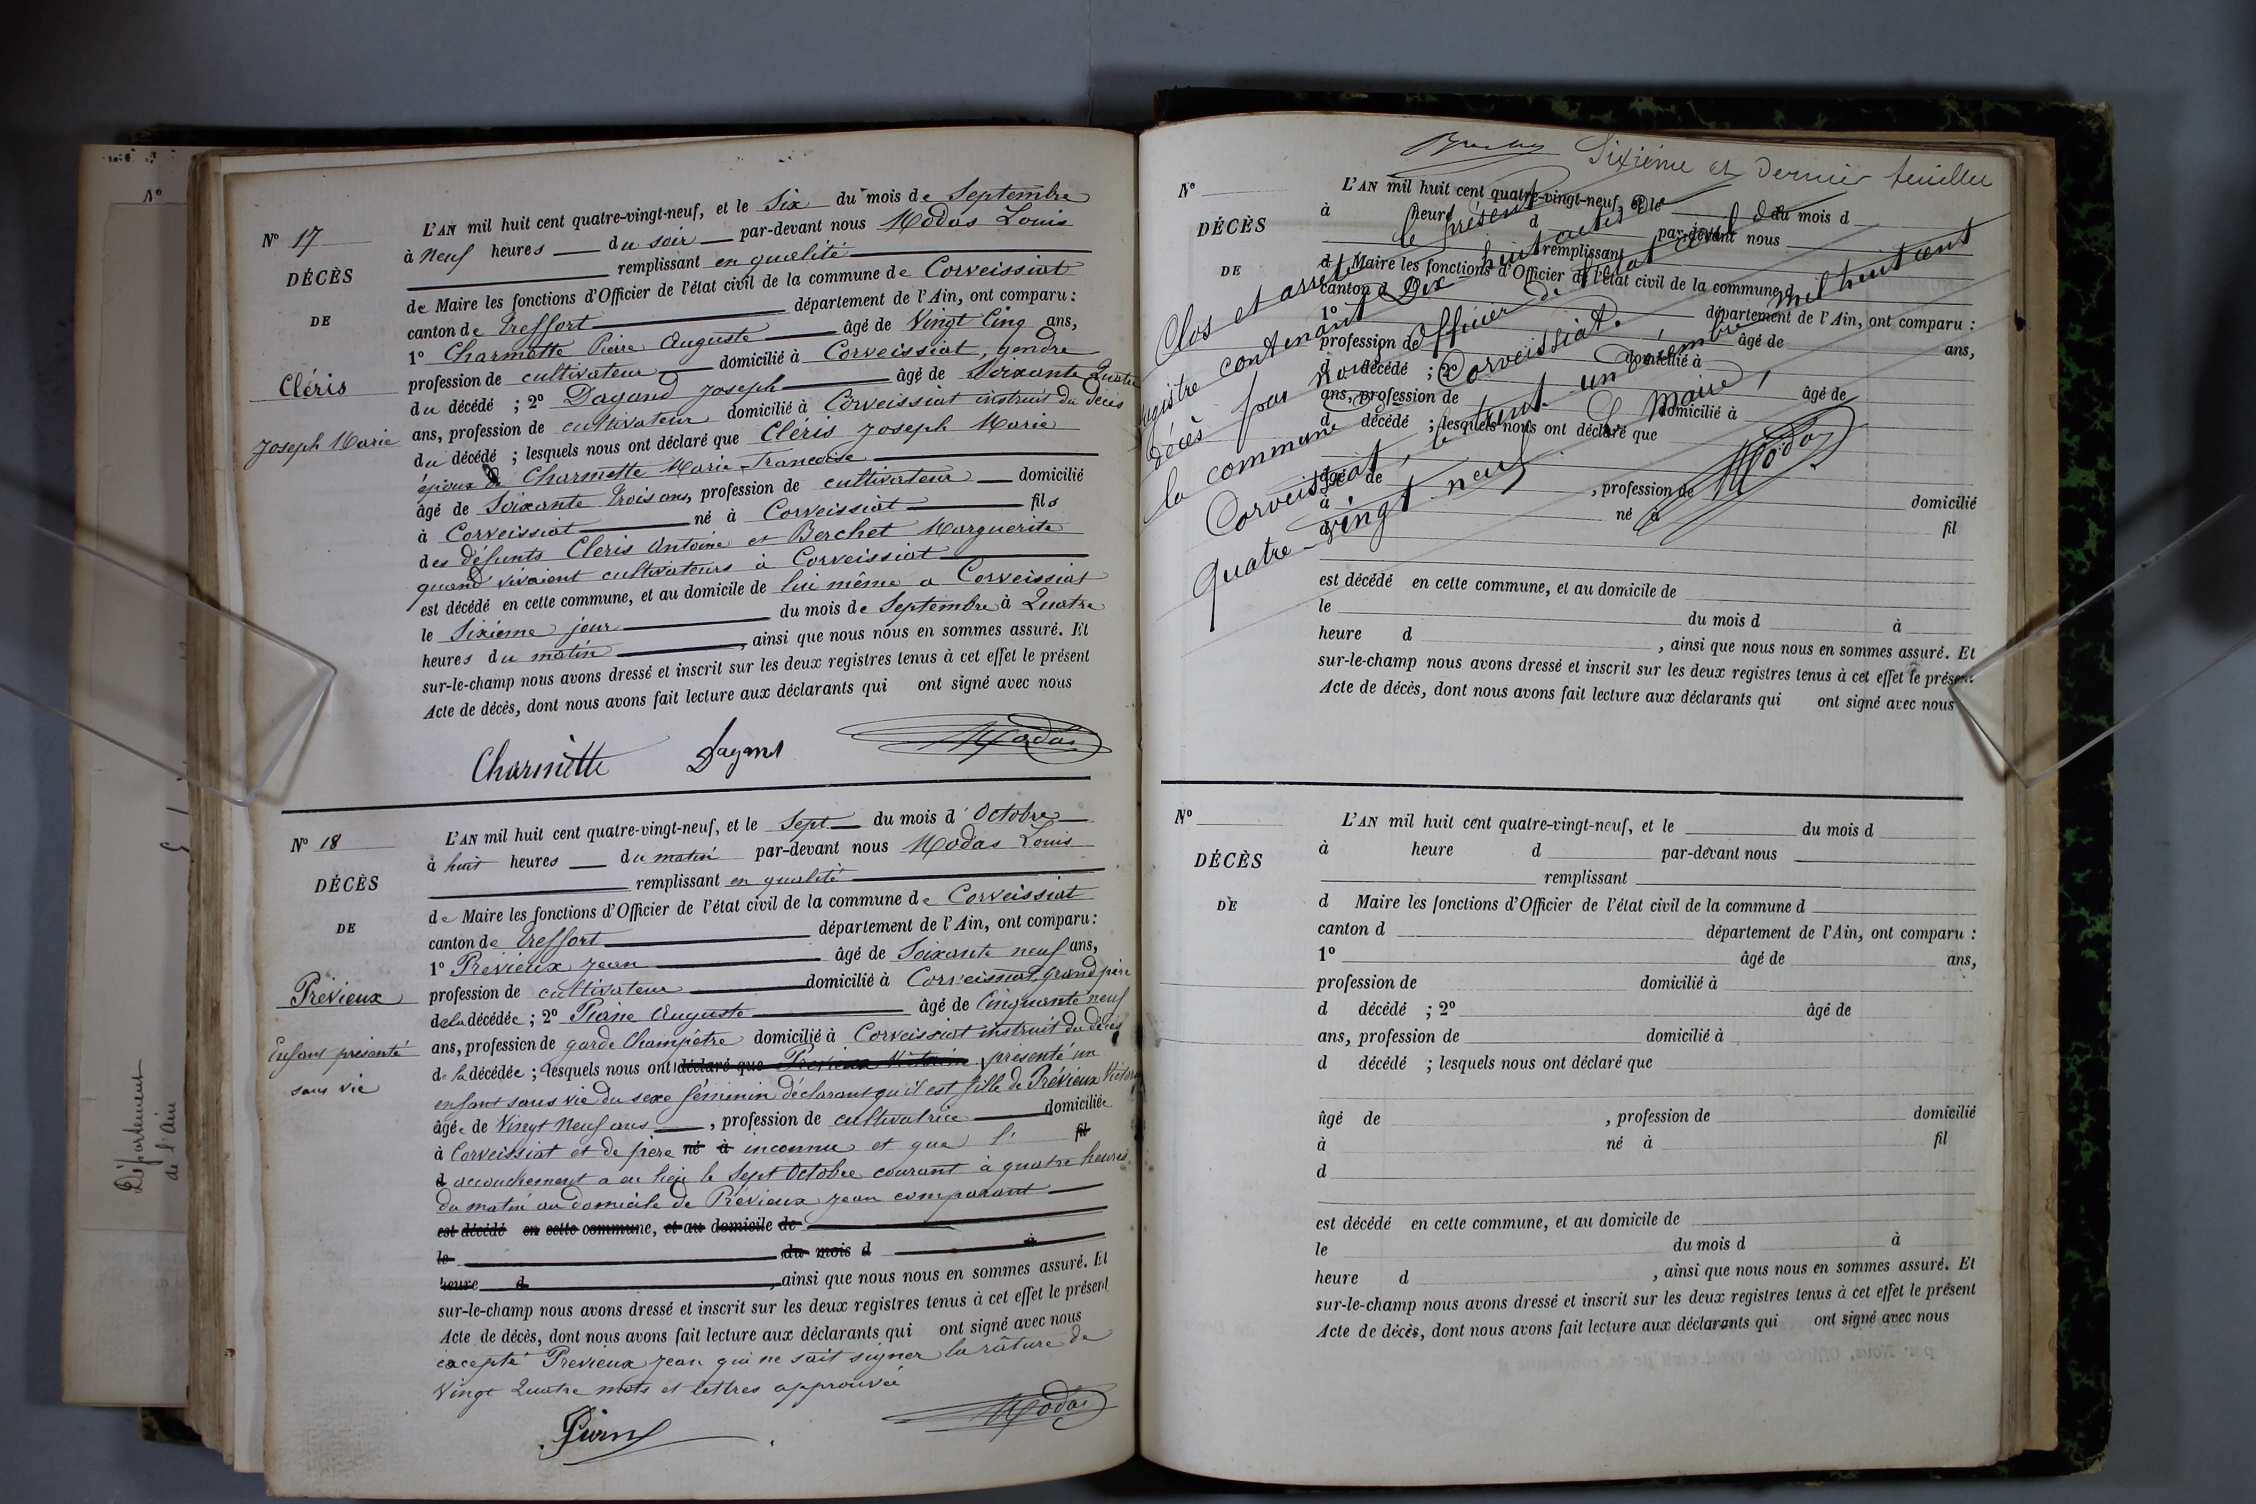 Nº
Département
de l'ain
Nº 17
DÉCÈS
DE
Cléris
Joseph Marie
L'AN mil huit cent quatre-vingt-neuf, et le Six du mois de Septembre
à neuf heures du soir par-devant nous Modas Louis
remplissant en qualité
de Maire les fonctions d'Officier de l'état civil de la commune de Corveissiat
canton de Treffort département de l'Ain, ont comparu :
1º Charmette Pierre Auguste âgé de Vingt Cinq ans,
profession de cultivateur domicilié à Corveissiat, gendre
du décédé ; 2º Dagand Joseph âgé de Soixante Quatre
ans, profession de cultivateur domicilié à Corveissiat instruit du décès
du décédé ; lesquels nous ont déclaré que Cléris Joseph Marie
époux de Charmette Marie-Francoise
âgé de Soixante Trois ans, profession de cultivateur domicilié
à Corveissiat né à Corveissiat fils
des défunts Cleris Antoine et Berchet Marguerite
quand vivaient cultivateurs à Corveissiat
est décédé en cette commune, et au domicile de lui même a Corveissiat
le Sixième jour du mois de Septembre à Quatre
heures du matin, ainsi que nous nous en sommes assuré. Et
sur-le-champ nous avons dressé et inscrit sur les deux registres tenus à cet effet le présent
Acte de décès, dont nous avons fait lecture aux déclarants qui ont signé avec nous
Charmette Dagand Modas
Nº 18
DÉCÈS
DE
Prévieux
Enfant présenté
sans vie
L'AN mil huit cent quatre-vingt-neuf, et le Sept du mois d'Octobre
à huit heures du matin par-devant nous Modas Louis
remplissant en qualité
de Maire les fonctions d'Officier de l'état civil de la commune de Corveissiat
canton de Treffort département de l'Ain, ont comparu :
1º Prévieux Jean âgé de Soixante neuf ans,
profession de cultivateur domicilié à Corveissiat, grand père
de la décédée ; 2º Piane Auguste âgé de Cinquante neuf
ans, profession de garde Champêtre domicilié à Corveissiat instruit du décès
de la décédée ; lesquels nous ont déclaré que présenté un
enfant sans vie du sexe féminin déclarant qu'il est fille de Prévieux
âgée de Vingt Neuf ans, profession de cultivatrice domiciliée
à Corveissiat et de père né à inconnu et que l' fil
d accouchement a eu lieu le Sept Octobre courant à quatre heures
du matin au domicile de Prévieux Jean comparant
est décédé en cette commune, et au domicile de
le du mois d à
heure d, ainsi que nous nous en sommes assuré. Et
sur-le-champ nous avons dressé et inscrit sur les deux registres tenus à cet effet le présent
Acte de décès, dont nous avons fait lecture aux déclarants qui ont signé avec nous
excepté Prévieux Jean qui ne sait signer la râture de
Vingt Quatre mots et lettres approuvée
Modas
Sixième et dernier feuillet
Nº
DÉCÈS
DE
L'AN mil huit cent quatre-vingt-neuf, et le du mois d
à heure d par-devant nous
remplissant
d Maire les fonctions d'Officier de l'état civil de la commune d
canton d département de l'Ain, ont comparu :
1º âgé de ans,
profession de domicilié à
d décédé ; 2º âgé de
ans, profession de domicilié à
d décédé ; lesquels nous ont déclaré que
âgé de , profession de domicilié
à né à fil
d
est décédé en cette commune, et au domicile de
le du mois d à
heure d , ainsi que nous nous en sommes assuré. Et
sur-le-champ nous avons dressé et inscrit sur les deux registres tenus à cet effet le présent
Acte de décès, dont nous avons fait lecture aux déclarants qui ont signé avec nous
Clos et arrêté le présent
registre contenant Dix huit actes de
décès par nous officier de l'état civil de
la commune de Corveissiat.
Corveissiat, le trent un décembre mil huit cent
quatre-vingt neuf
Le Maire,
Modas
Nº
DÉCÈS
DE
L'AN mil huit cent quatre-vingt-neuf, et le du mois d
à heure d par-devant nous
remplissant
d Maire les fonctions d'Officier de l'état civil de la commune d
canton d département de l'Ain, ont comparu :
1º âgé de ans,
profession de domicilié à
d décédé ; 2º âgé de
ans, profession de domicilié à
d décédé ; lesquels nous ont déclaré que
âgé de , profession de domicilié
à né à fil
d
est décédé en cette commune, et au domicile de
le du mois d à
heure d , ainsi que nous nous en sommes assuré. Et
sur-le-champ nous avons dressé et inscrit sur les deux registres tenus à cet effet le présent
Acte de décès, dont nous avons fait lecture aux déclarants qui ont signé avec nous